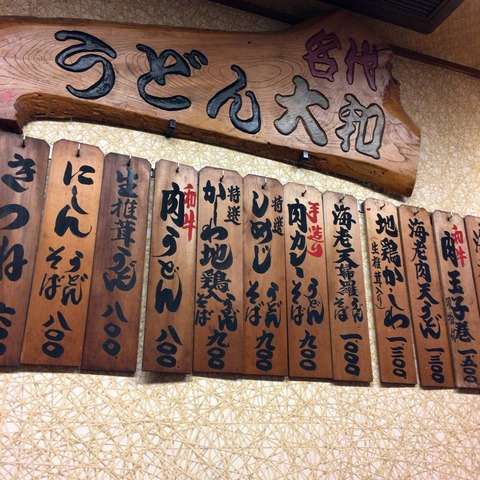 うどん大和
きつね 六〇〇
にしん うどん そば 八〇〇
生椎茸うどん 八〇〇
和牛 肉うどん 八〇〇
特選 かしわ地鶏 うどん そば 九〇〇
特選 しめじ うどん そば 九〇〇
手造り 肉カレー うどん そば 九〇〇
海老天婦羅 うどん そば 一〇〇〇
地鶏かしわ 生椎茸入り 一三〇〇
海老肉天うどん 一三〇〇
和牛 肉玉子巻